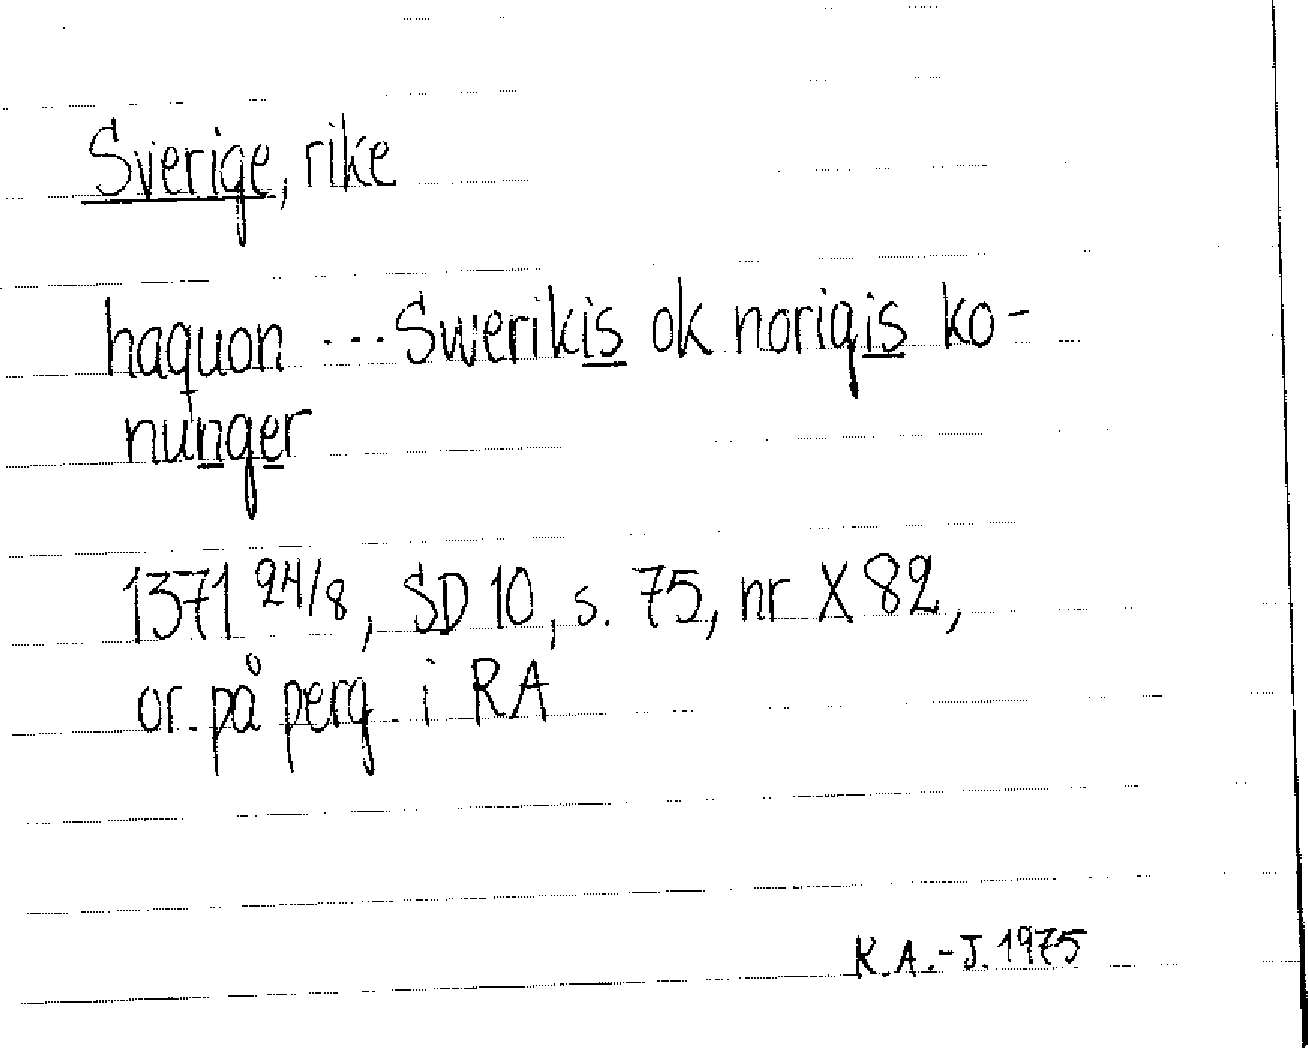 Sverige, rike
haquon ... Swerikis ok norigis ko-
nunger
1371 24/8, SD 10, s. 75, nr X 82,
or. på perg. i RA
K.A.-J. 1975